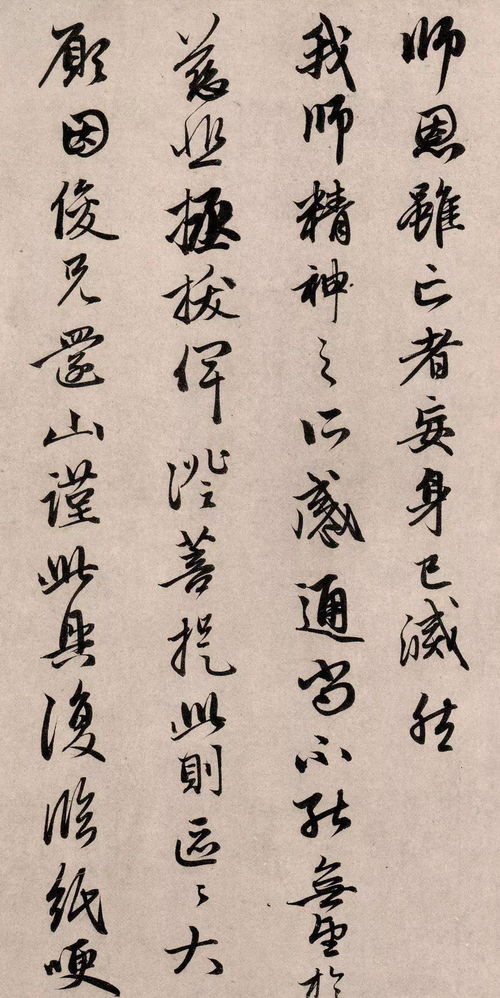 師恩雖亡者妄身已滅然
我師精神之所感通尚不能無望於
慈悲拯拔俾證菩提此則區〻大
願因俊兄還山謹此具復臨紙哽